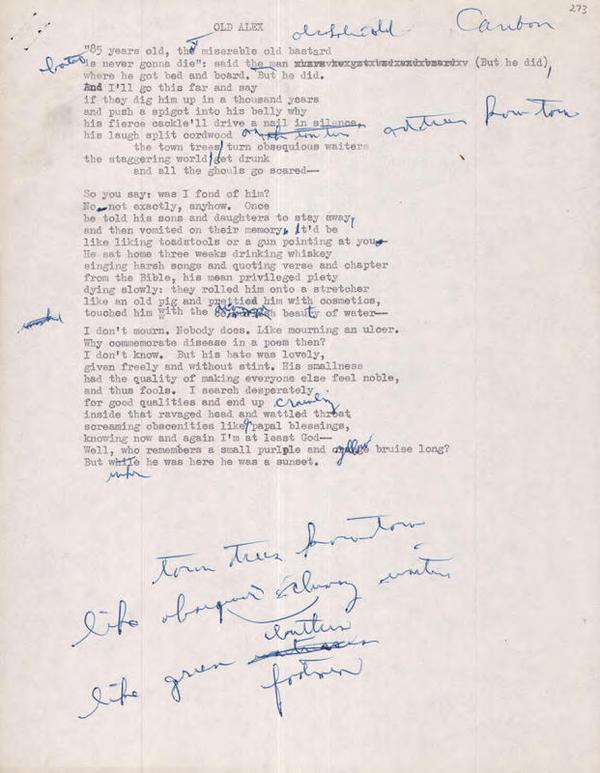 273
OLD ALEX
Carbon
"85 years old, the miserable old bastard
is never gonna die": said the man (But he did),
where he got bed and board. But he did.
And I'll go this far and say
if they dig him up in a thousand years
and push a spigot into his belly why
his fierce cackle'll drive a nail in silence,
his laugh split cordwood
the town trees turn obsequious waiters
the staggering world get drunk
and all the ghouls go scared—
So you say: was I fond of him?
No not exactly, anyhow. Once
he told his sons and daughters to stay away,
and then vomited on their memory. It'd be
like liking toadstools or a gun pointing at you
He sat home three weeks drinking whiskey
singing harsh songs and quoting verse and chapter
from the Bible, his mean privileged piety
dying slowly: they rolled him onto a stretcher
like an old pig and prettied him with cosmetics,
touched him with the beauty of water—
I don't mourn. Nobody does. Like mourning an ulcer.
Why commemorate disease in a poem then?
I don't know. But his hate was lovely,
given freely and without stint. His smallness
had the quality of making everyone else feel noble,
and thus fools. I search desperately
for good qualities and end up crawling
inside that ravaged head and wattled throat
screaming obscenities like papal blessings,
knowing now and again I'm at least God—
Well, who remembers a small purlple and yellow bruise long?
But while he was here he was a sunset.
when
town trees
like obsequious waiters
butlers
like green
footmen